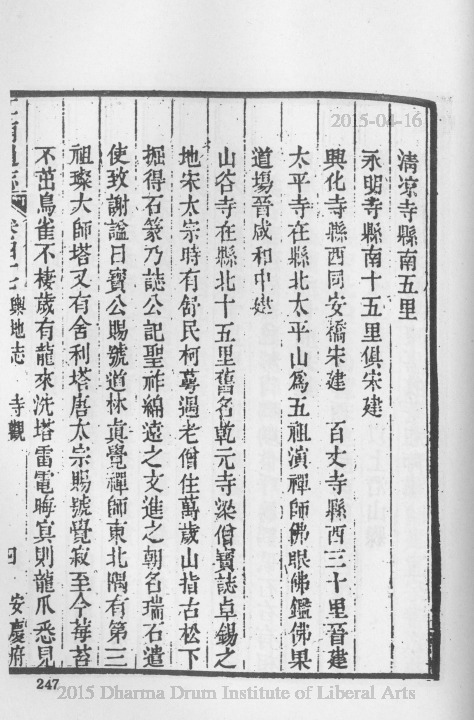 2015-04-16
清凉寺縣南五里
永明寺縣南十五里俱宋建
興化寺縣西同安橋宋建　百丈寺縣西三十里晉建
太平寺在縣北太平山爲五祖演禪師佛眼佛鑑佛果
道塲晉咸和中建
山谷寺在縣北十五里舊名乾元寺梁僧寶誌卓錫之
地宋太宗時有舒民柯蕚遇老僧住萬歲山指古松下
掘得石篆乃誌公記聖祚綿遠之文進之朝名瑞石遣
使致謝謚曰寶公賜號道林眞覺禪師東北隅有第三
祖璨大師塔又有舍利塔唐太宗賜號覺寂至今莓苔
不茁鳥雀不棲歲有龍來洗塔雷電晦冥則龍爪悉見
輿地志　寺觀　四　安慶府
247
2015 Dharma Drum Institute of Liberal Arts